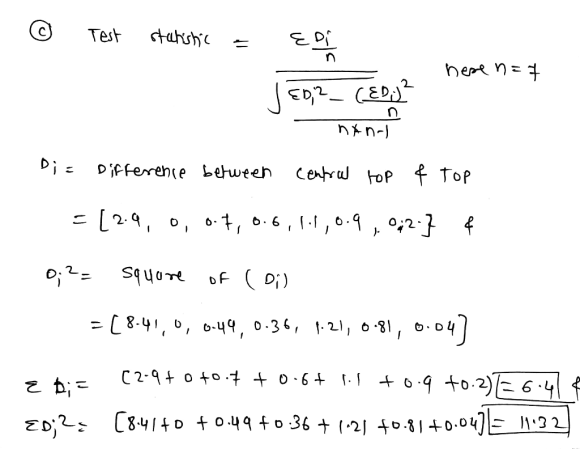 (c) Test statistic = ΣDi/n / √((ΣDi² - (ΣDi)²/n) / (n*n-1)) here n = 7
Di = Difference between central top & Top
= [2.9, 0, 0.7, 0.6, 1.1, 0.9, 0.2.] &
Di² = square of (Di)
= [8.41, 0, 0.49, 0.36, 1.21, 0.81, 0.04]
ΣDi = (2.9 + 0 + 0.7 + 0.6 + 1.1 + 0.9 + 0.2) = 6.4 &
ΣDi² = [8.41 + 0 + 0.49 + 0.36 + 1.21 + 0.81 + 0.04] = 11.32